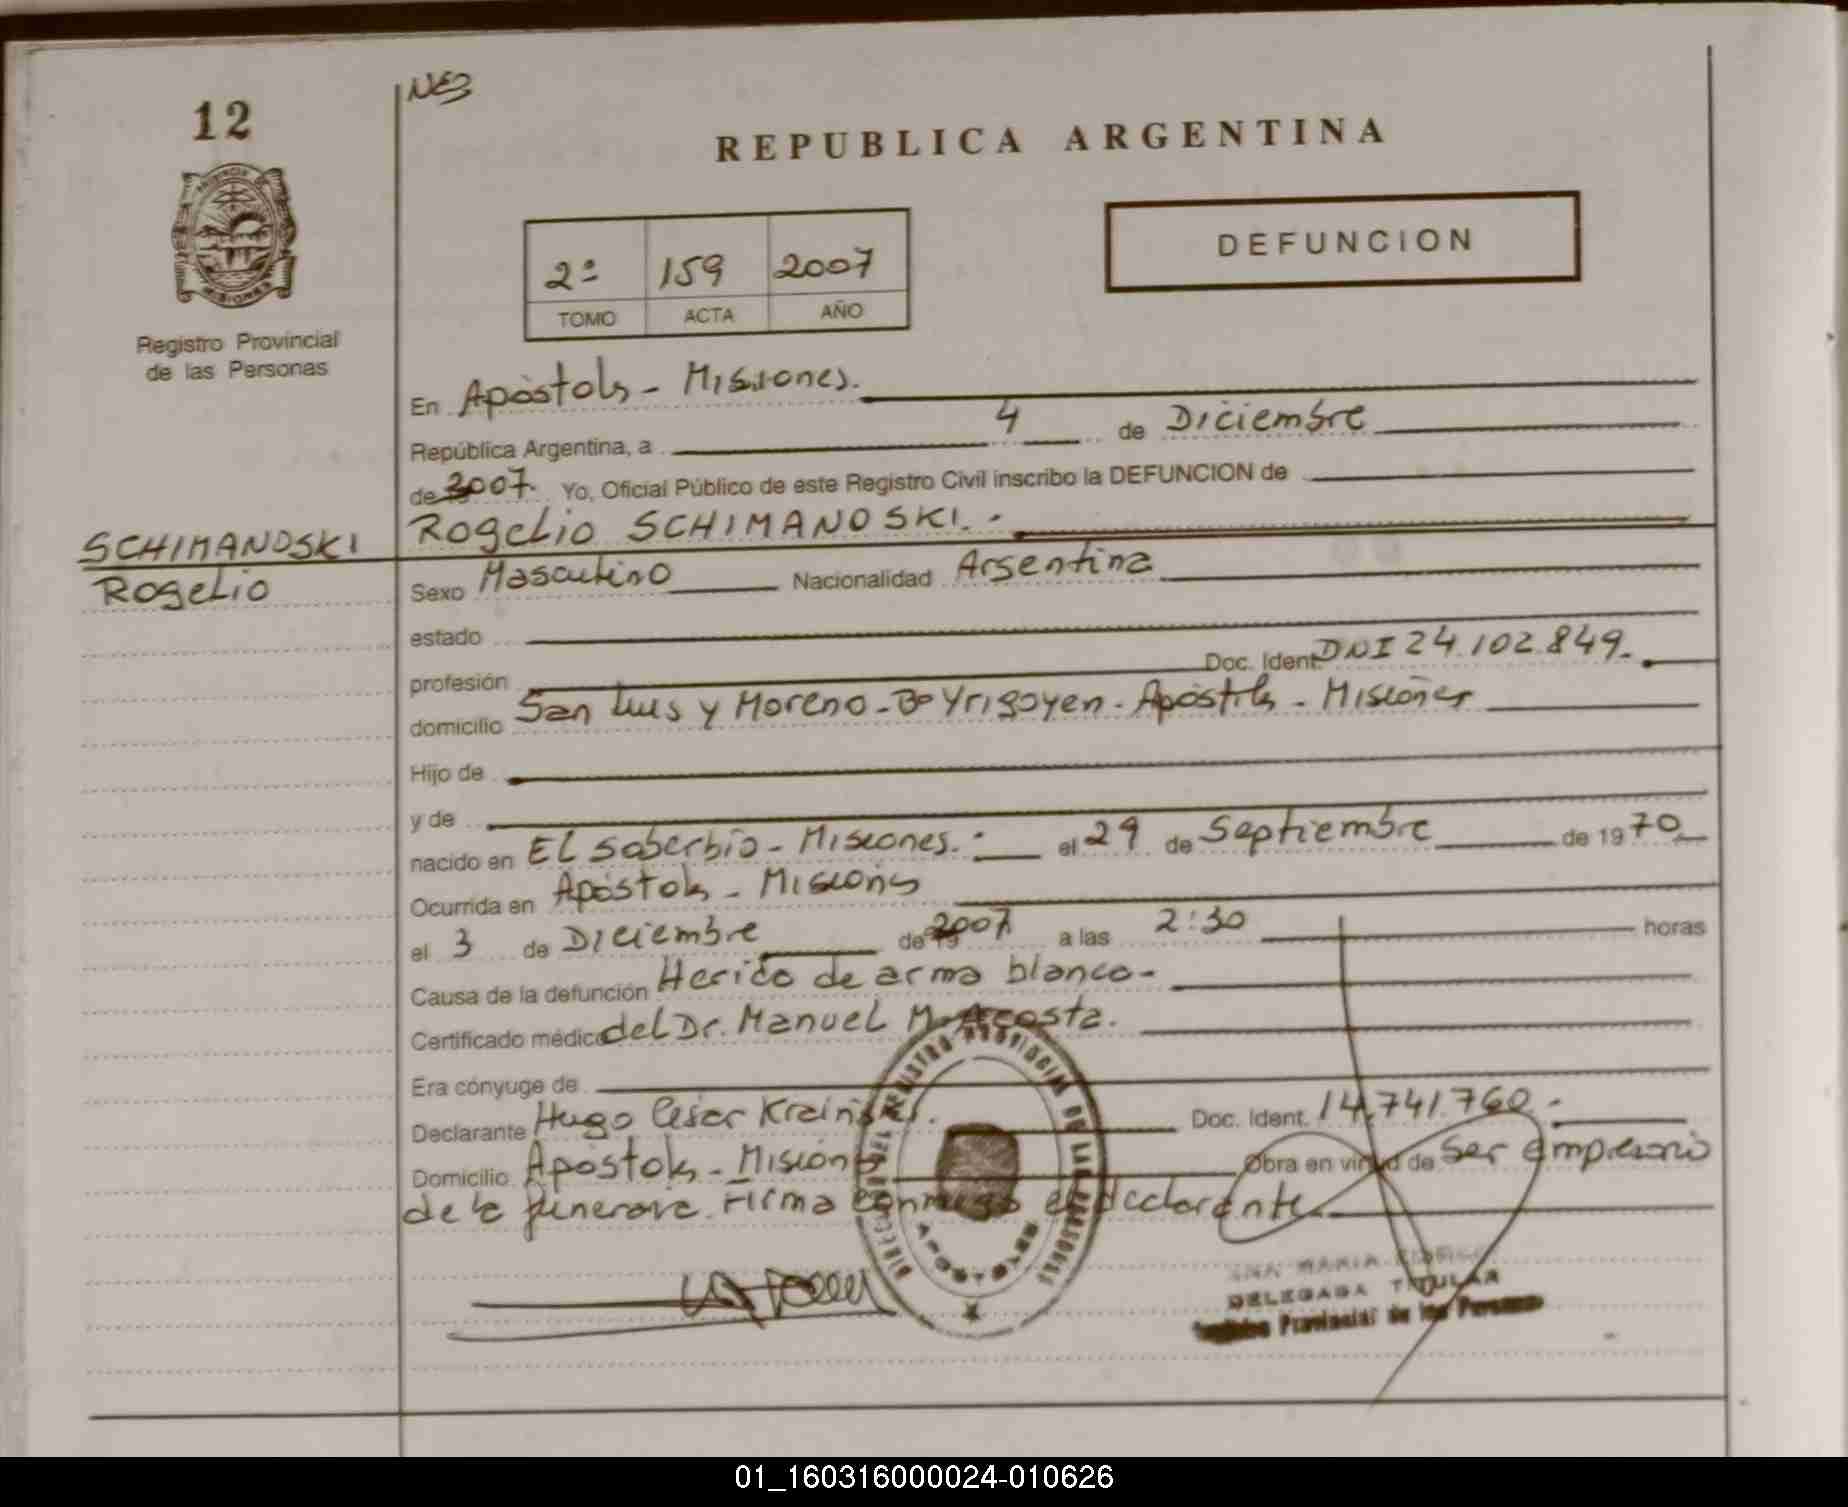 12
NES
REPUBLICA ARGENTINA
DEFUNCION
2º 159 2007
TOMO ACTA AÑO
Registro Provincial
de las Personas
En Apóstoles - Misiones.
República Argentina, a 4 de Diciembre
de 2007. Yo, Oficial Público de este Registro Civil inscribo la DEFUNCION de
Rogelio SCHIMANOSKI.-
SCHIMANOSKI
Rogelio
Sexo Masculino Nacionalidad Argentina
estado
profesión Doc. Ident. DNI 24.102.849.
domicilio San Luis y Moreno - Bº Yrigoyen - Apóstoles - Misiones
Hijo de
y de
nacido en El Soberbio - Misiones.- el 29 de Septiembre de 1970
Ocurrida en Apóstoles - Misiones
el 3 de Diciembre de 2007 a las 2:30 horas
Causa de la defunción Herida de arma blanca-
Certificado médico del Dr. Manuel M. Acosta.
Era cónyuge de
Declarante Hugo César Doc. Ident. 14.741.760.-
Domicilio Apóstoles - Misiones Obra en virtud de ser empresario
de la funeraria. Firma conmigo el declarante
DIRECC DEL REGISTRO PROVINCIAL DE LAS PERSONAS
APOSTOLES
ANA MARIA
DELEGADA TITULAR
Registro Provincial de las Personas
01_160316000024-010626